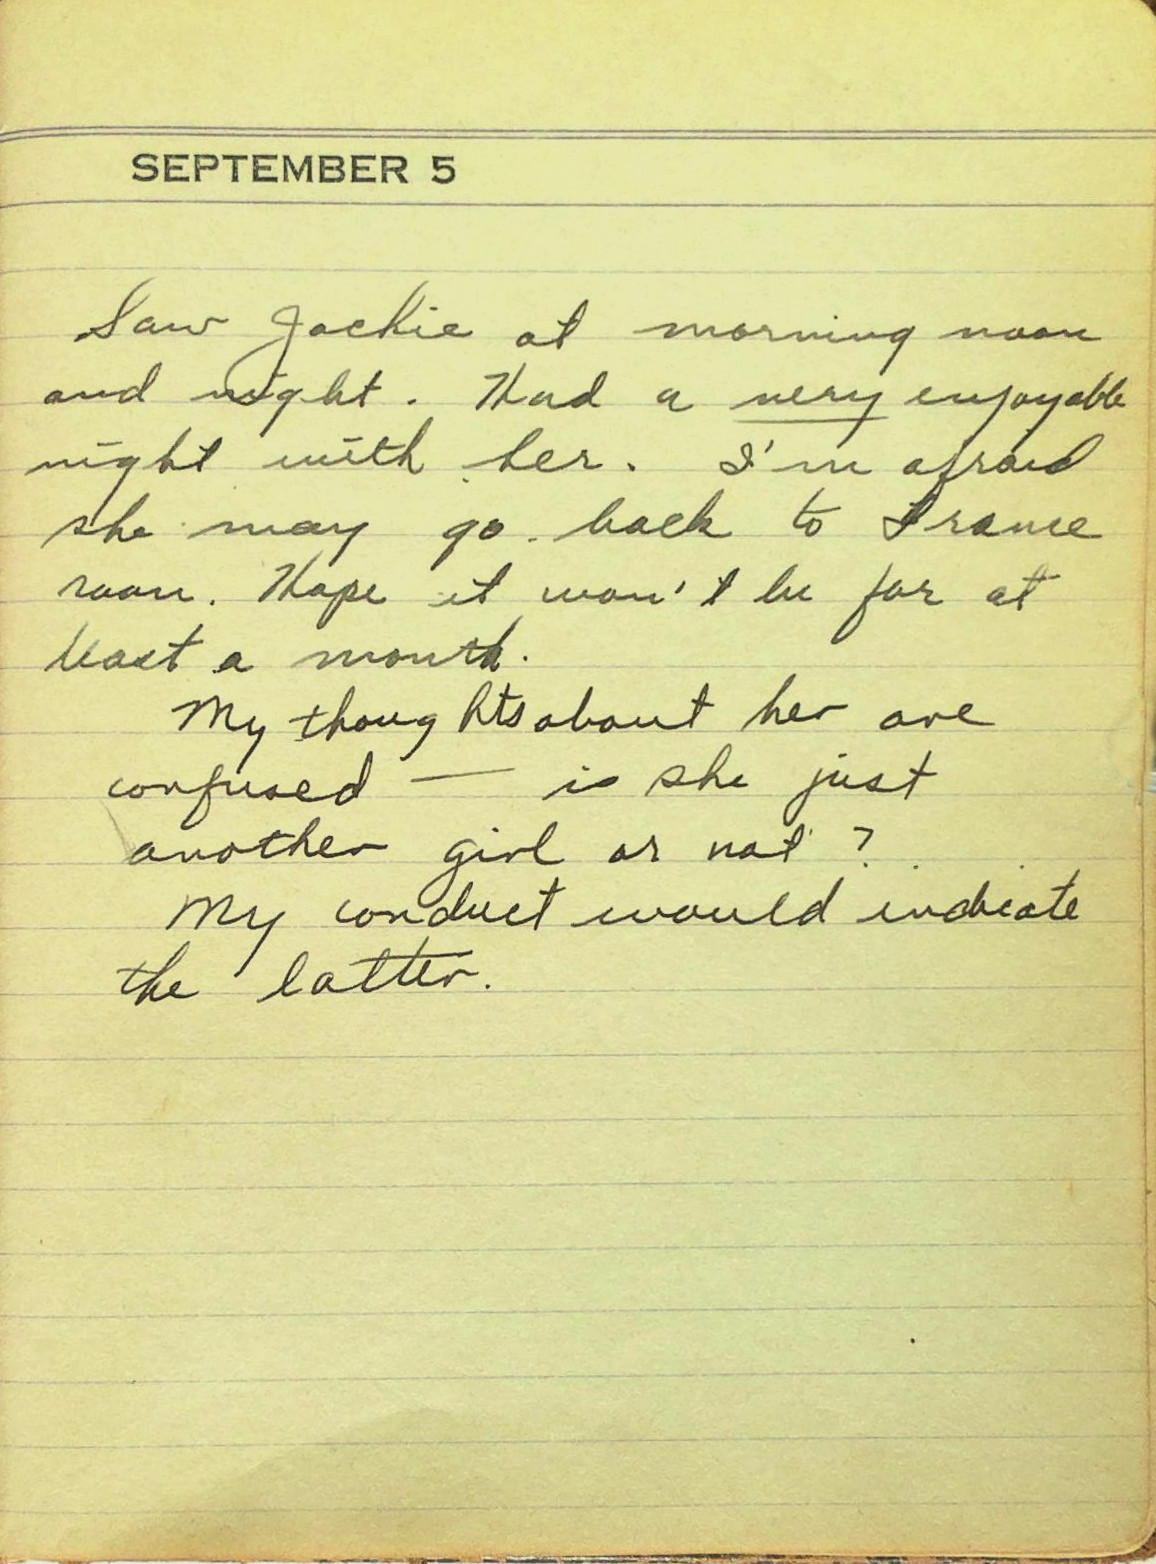 SEPTEMBER 5
Saw Jackie at morning noon
and night. Had a very enjoyable
night with her. I'm afraid
she may go back to France
soon. Hope it won't be for at
least a month.
My thoughts about her are
confused — is she just
another girl or not?
My conduct would indicate
the latter.